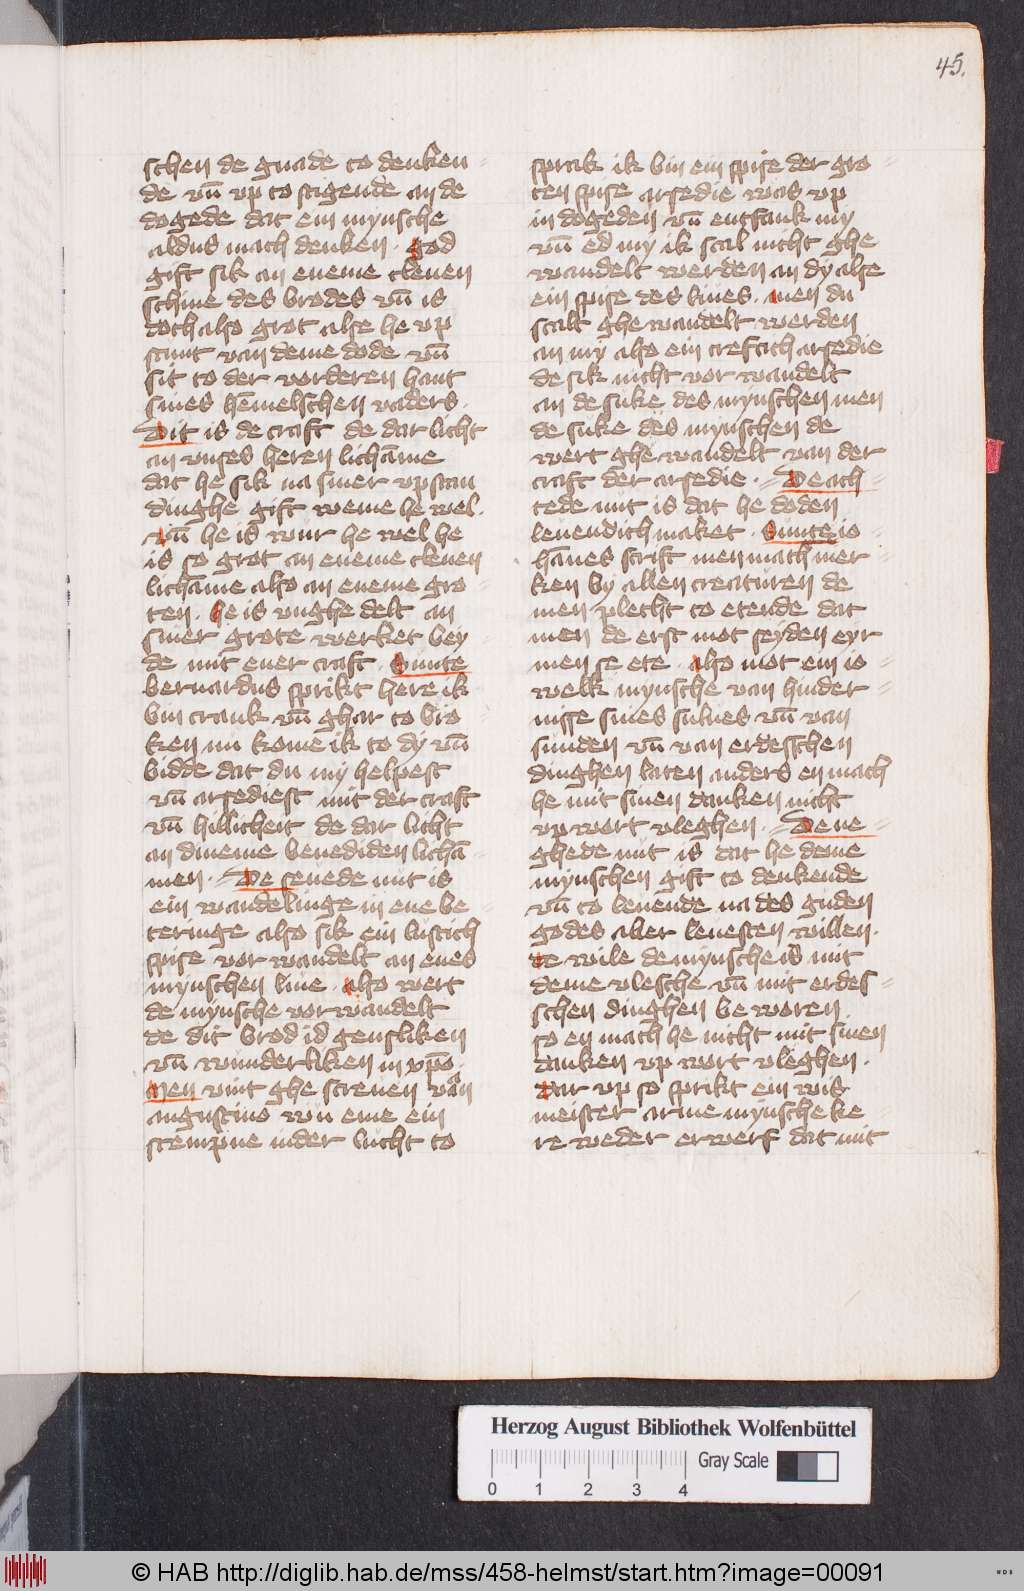 45.
schen de gnade to denken
de vn̄ vp to stigende an de
dogede dat ein mynsche
aldus mach denken . god
gift sik an eneme clenen
schine des brodes vn̄ is
doch also grot alse he vp
stunt van deme dode vn̄
sit to der vorderen hant
sines hēmelschen vaders .
Dit is de craft de dar licht
an vnses heren lichāme
dat he sik na siner vpstan
dinghe gift weme he wel .
vn̄ he is wur he wel he
is so grot an eneme clenen
lichāme also an eneme gro
ten . he is vnghe delt an
siner grote werket bey
de mit ener craft . Sunte
bernardus sprikt here ik
bin crank vn̄ ghar to bro
ken nu kome ik to dy vn̄
bidde dat du my helpest
vn̄ arsediest mit der craft
vn̄ hillicheit de dar licht
an dineme benediden lichā
men . De seuede nut is
ein wandelinge in ene be
teringe also sik ein lustich
spise vor wandelt an enes
mynschen liue . also wert
de mynsche vorwandelt
de dit brod id gensliken
vn̄ wunderliken in xp̄o .
Men vint ghe screuen van
augustino wu eme ein
stempne in der lucht to
sprak ik bin ein spise der gro
ten spise arsedie was vp
in dogeden vn̄ entfank my
vn̄ ed my ik scal nicht ghe
wandelt werden an dy alse
ein spise des liues . men du
scalt ghe wandelt werden
an my also ein creftich arsedie
de sik nicht vor wandelt
an de suke des mynschen men
de suke des mynschen de
wert ghe wandelt van der
craft der arsedie . De ach
tede nut is dat he doden
leuendich maket . Sunte io
hānes scrift men mach mer
ken by allen creaturen de
men plecht to etende dat
men de erst mot seyden eyr
men se ete . also mot ein io
welk mynsche van hinder
nisse sines sulues vn̄ van
sunden vn̄ van erdesschen
dinghen laten anders en mach
he mit sinen danken nicht
vp wort vleghen . De ne
ghede nut is dat he deme
mynschen gift to denkende
vn̄ to leuende na des guden
godes aller leuesten willen .
de wile de mynsche is mit
deme vlesche vn̄ mit erdes
schen dinghen be woren
so en mach he nicht mit sinen
danken vp wort vleghen .
Dar vp so sprikt ein wis
meister arme mynsche ke
re weder erwerf dat mit
Herzog August Bibliothek Wolfenbüttel
Gray Scale
0 1 2 3 4
© HAB http://diglib.hab.de/mss/458-helmst/start.htm?image=00091